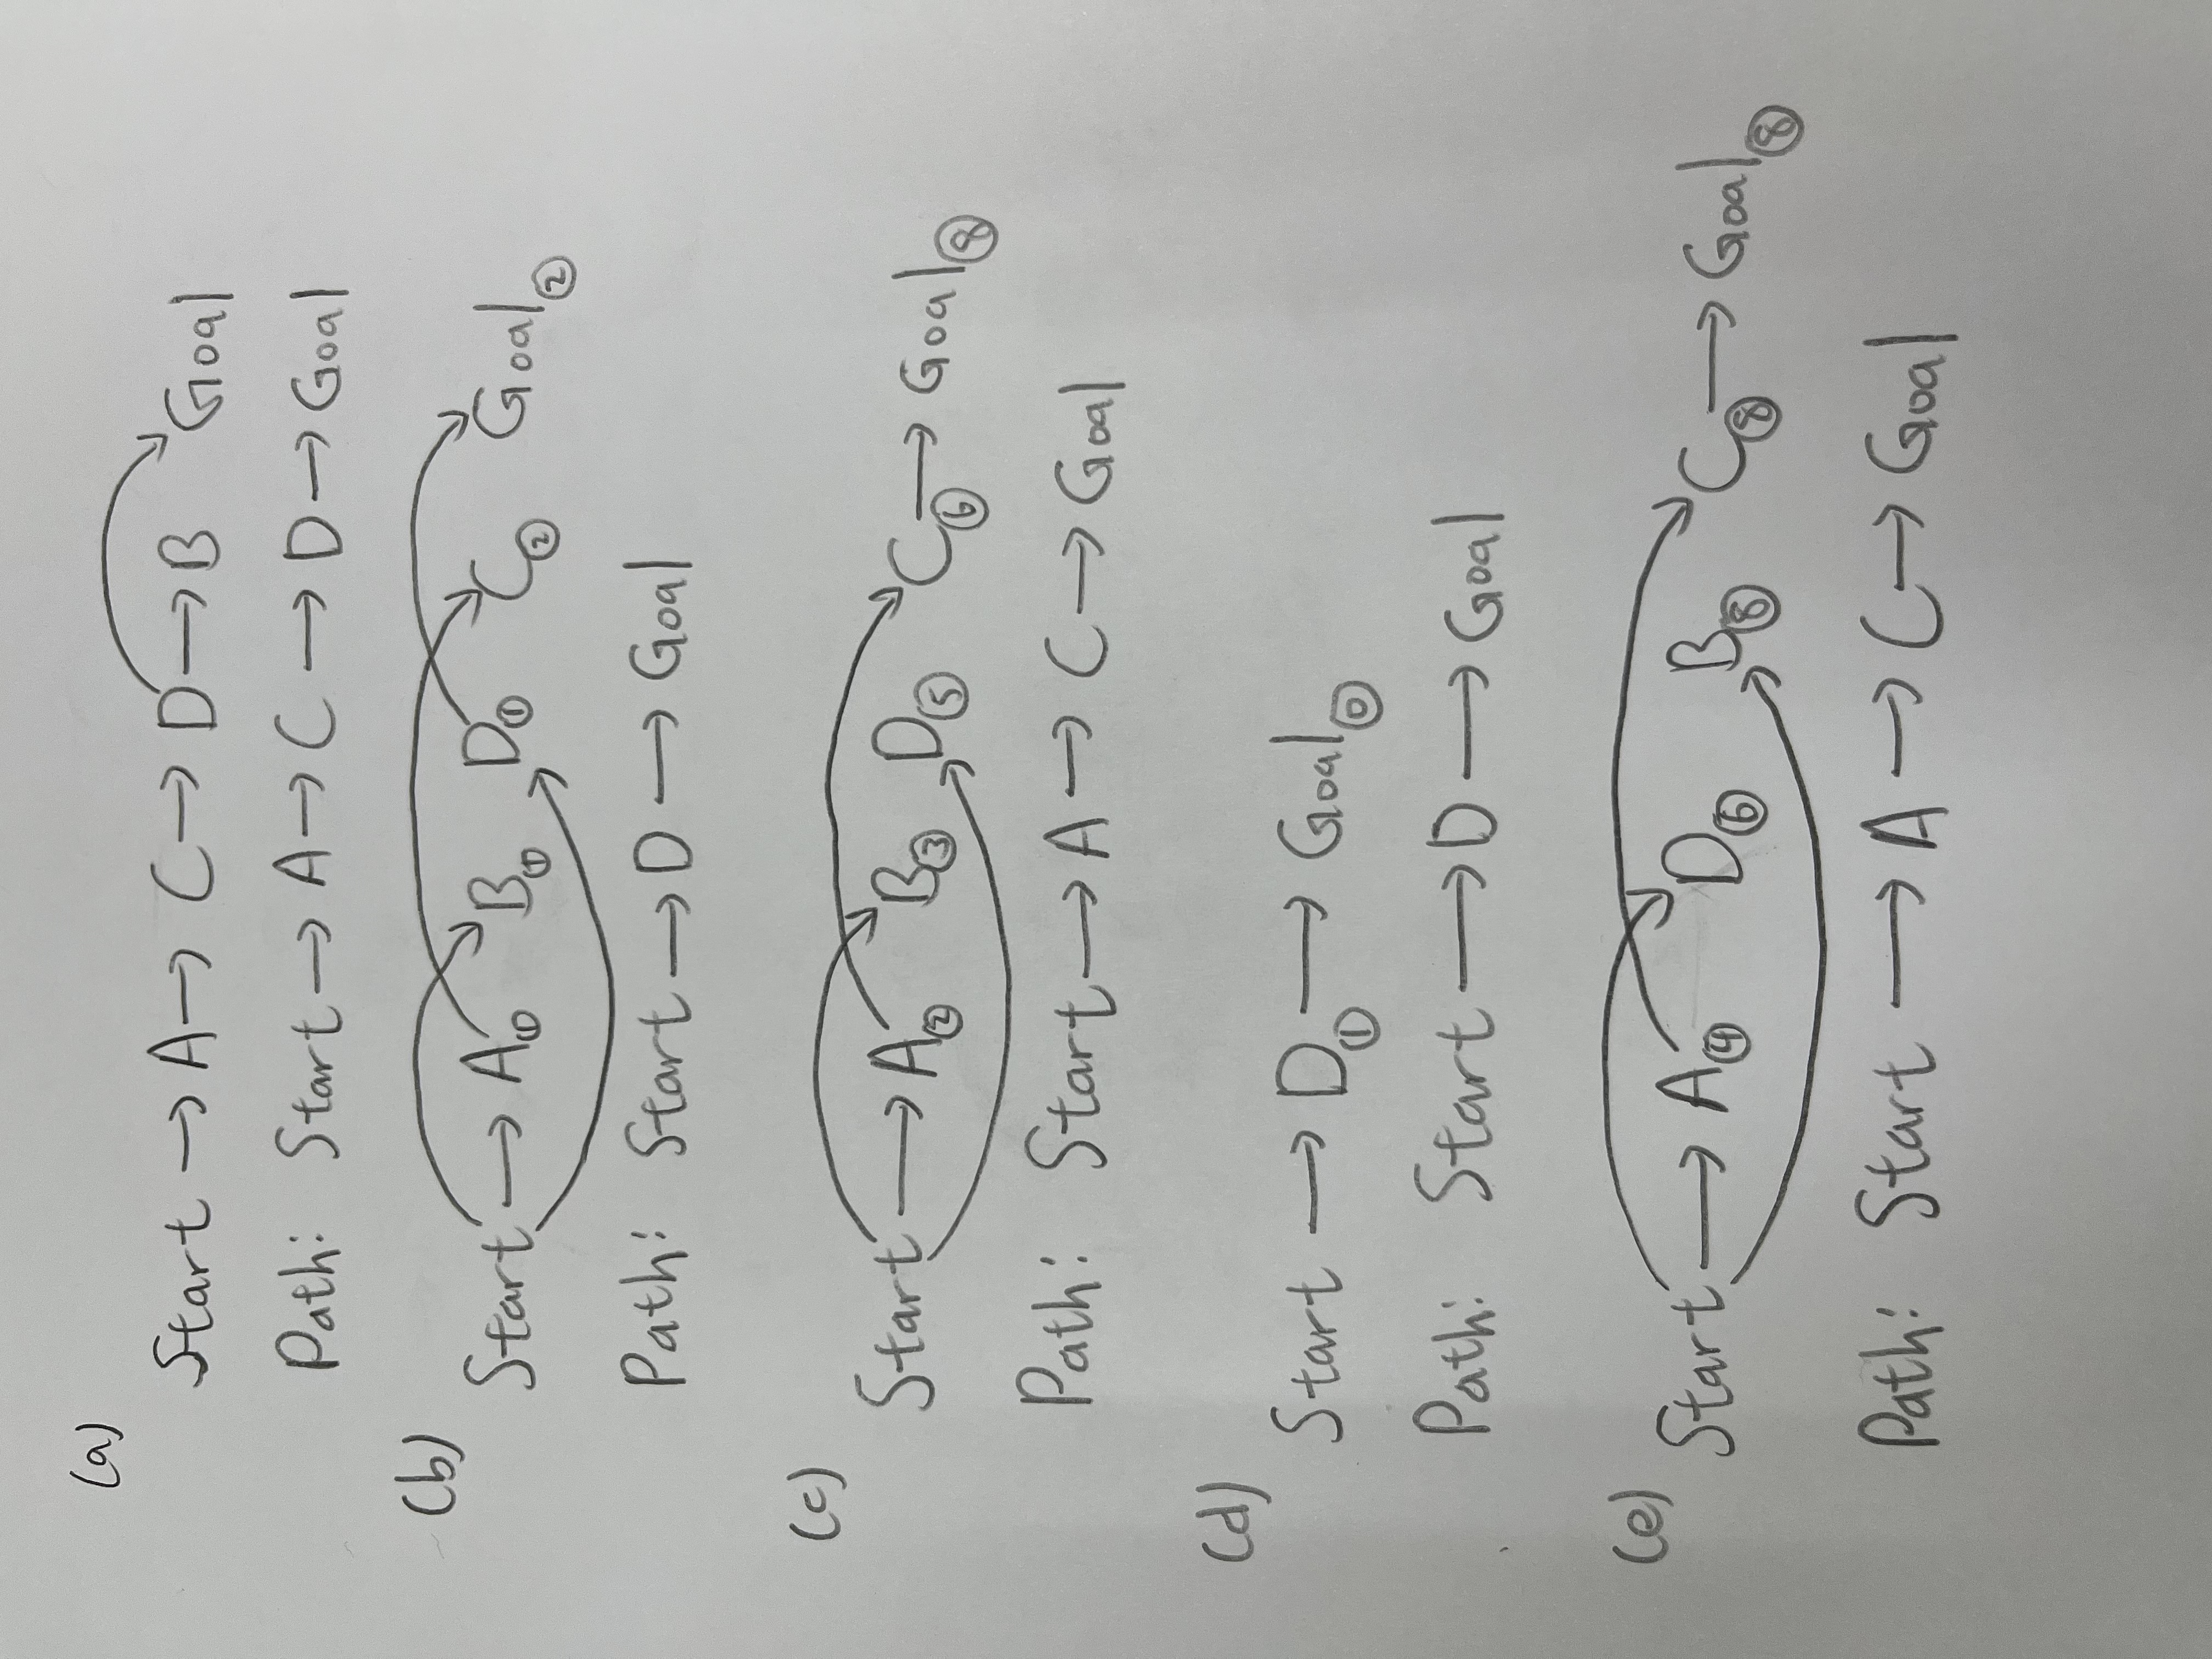 (a)
Start → A → C → D → B Goal
Path: Start → A → C → D → Goal
(b)
Start → A① B① D① C② Goal②
Path: Start → D → Goal
(c)
Start → A② B③ D⑤ C⑥ → Goal⑧
Path: Start → A → C → Goal
(d)
Start → D① → Goal⓪
Path: Start → D → Goal
(e)
Start → A④ D⑥ B⑧ C⑧ → Goal⑧
Path: Start → A → C → Goal